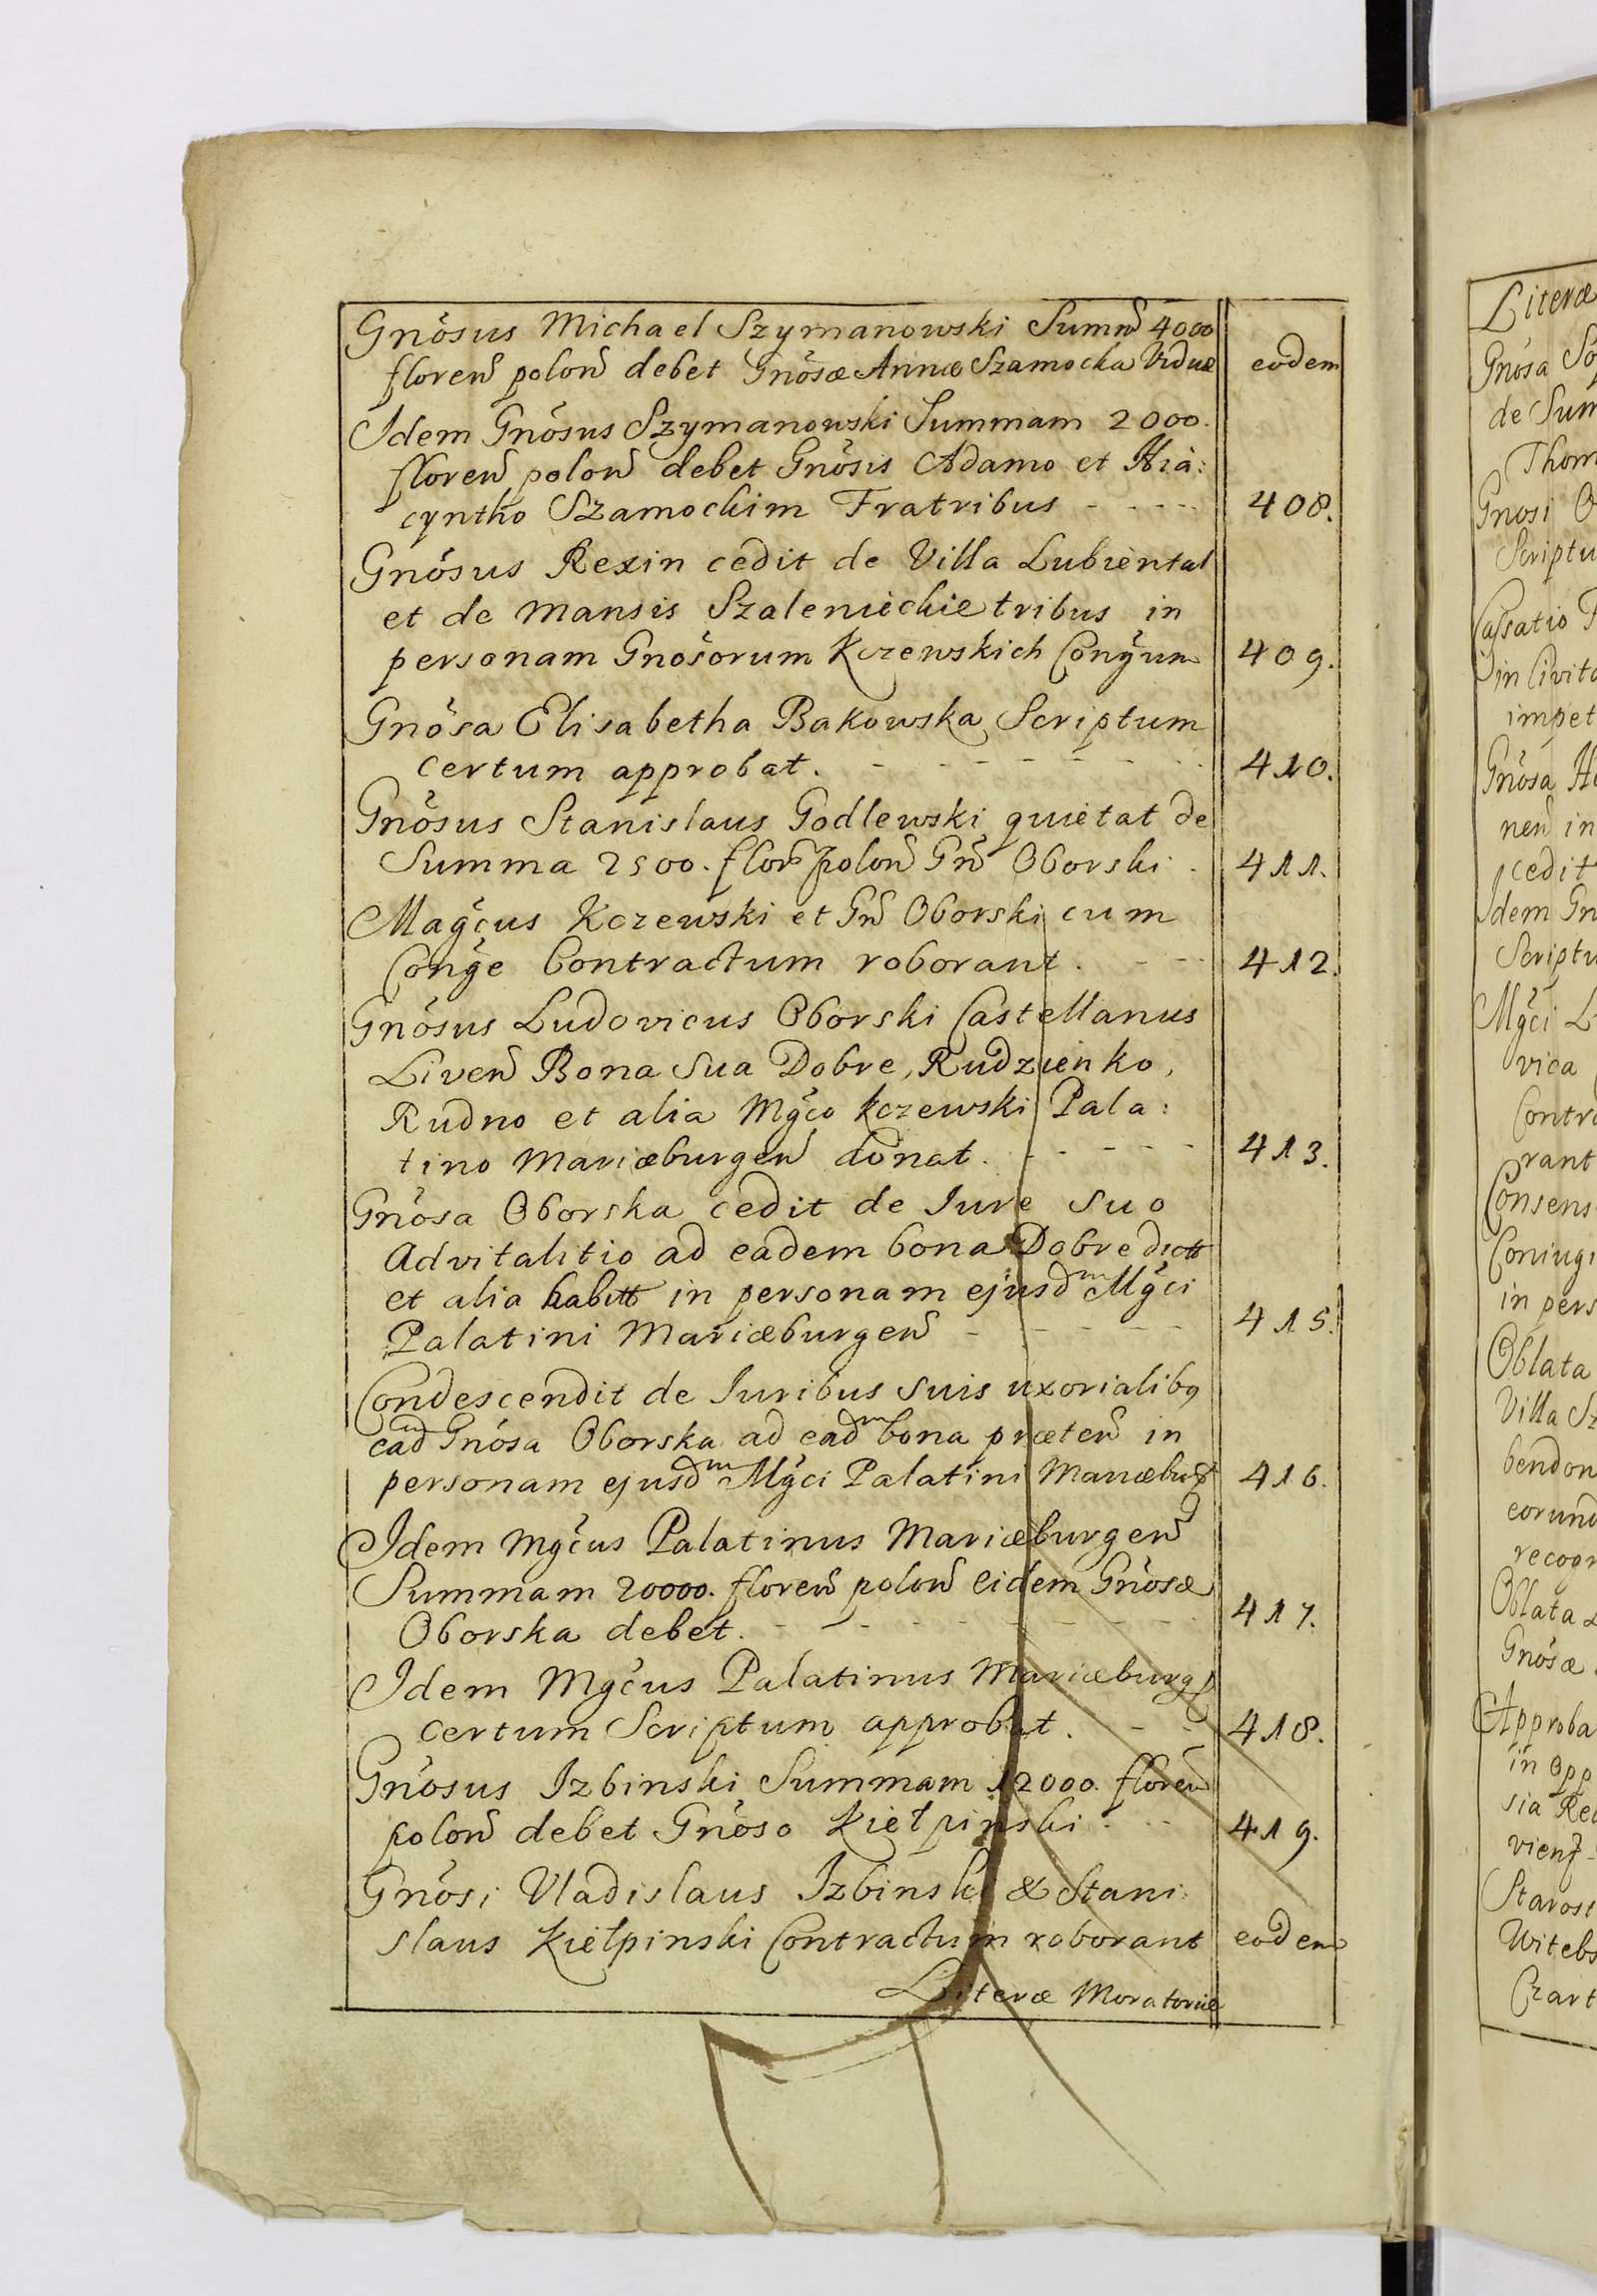 Gnosus Michael Szymanowski Summ 4000
floren polon debet Gnosæ Annæ Szamocka Viduæ eodem
Idem Gnosus Szymanowski Summam 2000.
floren polon debet Gnosis Adamo et Hia:
cyntho Szamockim Fratribus - - - - - 408.
Gnosus Rexin cedit de Villa Lubiental
et de Mansis Szalenieckie tribus in
personam Gnosorum Kczewskich Conjum 409.
Gnosa Elisabetha Bakowska Scriptum
certum approbat. - - - - - - - 410.
Gnosus Stanislaus Godlewski quietat de
Summa 2500. flor polon Gn Oborski. 411.
Magcus Kczewski et Gn Oborski cum
Conge Contractum roborant. - - - 412.
Gnosus Ludovicus Oborski Castellanus
Liven Bona sua Dobre, Rudzienko,
Rudno et alia Mgco Kczewski Pala:
tino Mariæburgen donat. - - - - - 413.
Gnosa Oborska cedit de Jure suo
Advitalitio ad eadem bona Dobre dictt
et alia habitt in personam ejusdm Mgci
Palatini Mariæburgen - - - - - - 415.
Condescendit de Juribus suis uxorialibq
ead Gnosa Oborska ad eadm bona præten in
personam ejusdm Mgci Palatini Mariæburg 416.
Idem Mgcus Palatinus Mariæburgen
Summam 20000. floren polon eidem Gnosæ
Oborska debet. - - - - - - - - 417.
Idem Mgcus Palatinus Mariæburg
certum Scriptum approbat. - - 418.
Gnosus Izbinski Summam 12000. floren
polon debet Gnoso Kiełpinski. - - 419.
Gnosi Vladislaus Izbinski & Stani:
slaus Kiełpinski Contractum roborant eodem
Literæ Moratoriæ
Literæ
Gnosa
de Sum
Thom
Gnosi
Scriptu
Cassatio
in Civita
impet
Gnosa
nen in
cedit
Idem Gn
Scriptu
Mgci
vica
Contra
rant
Consens
Coniugi
in pers
Oblata
Villa Sz
bendon
eorund
recogn
Oblata
Gnosæ
Approba
in Opp
sia
Starost
Witebs
Czart